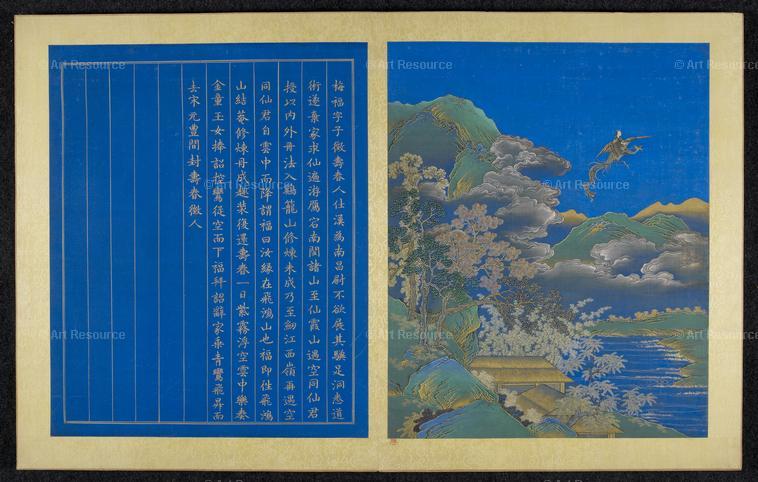 梅福字子微壽春人仕漢為南昌尉不欲展其驥足洞悉道
術遂棄家求仙遍游鴈宕南閩諸山至仙霞山遇空同仙君
授以內外丹法入鷄籠山修煉未成乃至劒江西嶺再遇空
同仙君自雲中而降謂福曰汝緣在飛鴻山也福即住飛鴻
山結菴修煉丹成趣装復還壽春一日紫霧浮空雲中樂奏
金童玉女捧詔控鸞從空而下福拜詔辭家乘青鸞飛昇而
去宋元豐間封壽春微人
© Art Resource
© Art Resource
© Art Resource
© Art Resource
© Art Resource
© Art Resource